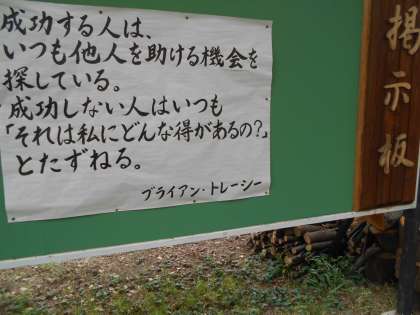 成功する人は、
いつも他人を助ける機会を
探している。
成功しない人はいつも
「それは私にどんな得があるの?」
とたずねる。
ブライアン・トレーシー
掲示板